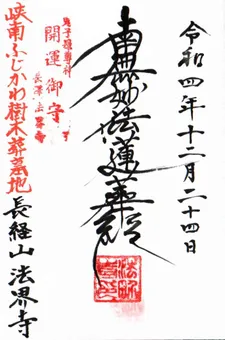 令和四年十二月二十四日
南無妙法蓮華経
開運御守
峡南ふじかわ樹木葬墓地
長経山法界寺